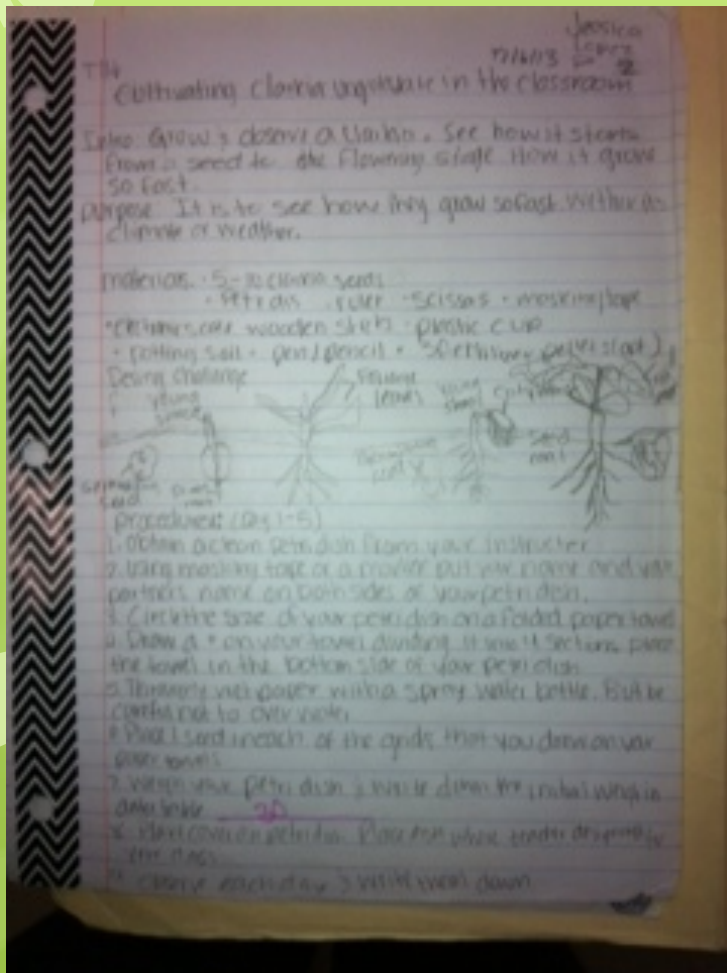 Jessica
Lopez
2
Cultivating Clarkia unguiculate in the classroom
Intro Grow & observe a Clarkia. See how it starts
from a seed to the flowering stage How it grow
so fast.
purpose It is to see how they grow so fast. Wether its
climate or weather.
materials · 5- clarkia seeds
· Petri dis · ruler · scissors · masking tape
wooden sticks · plastic cup
· potting soil · pen/pencil ·
Desing Challenge
young
Foliage
leaves
young
Seed
root
procedures: (Day 1-5)
1. Obtain a clean petri dish from your instructer
2. Using masking tape or a marker put your name and your
partners name on both sides of your petri dish.
3. Circle the size of your petri dish on a folded paper towel
4. Draw a + on your towel dividing it into 4 sections place
the towel in the bottom side of your petri dish
5. wet paper with a spray water bottle. But be
careful not to over water
6. Place 1 seed in each of the grids that you drew on your
paper towels
7. Weigh your petri dish & write down the initial weigh in
data table 20
8. Place cover on petri dish. Place them where teacher
9. observe each day & write them down